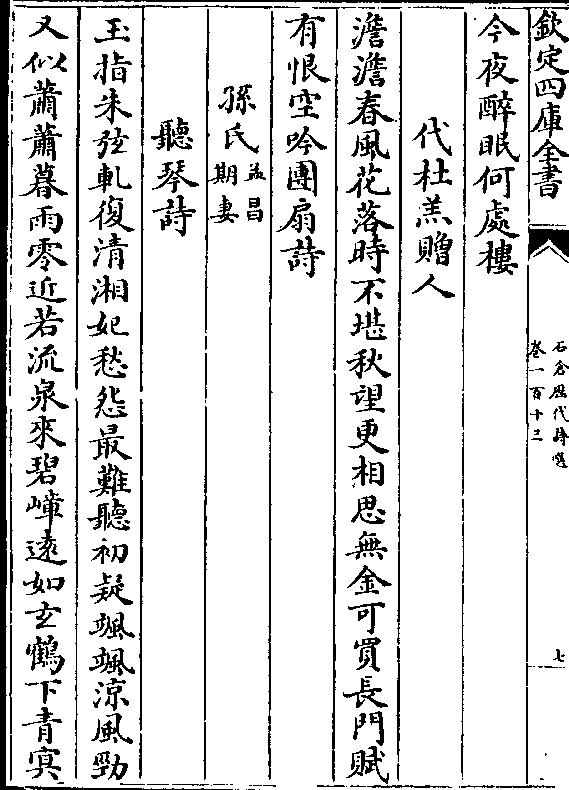 欽定四庫全書
石倉歷代詩選
卷一百十三
七
今夜醉眠何處樓
代杜羔贈人
澹澹春風花落時不堪秋望更相思無金可買長門賦
有恨空吟團扇詩
孫氏孟昌期妻
聽琴詩
玉指朱弦軋復清湘妃愁怨最難聽初疑颯颯涼風勁
又似蕭蕭暮雨零近若流泉來碧嶂遠如玄鶴下青冥